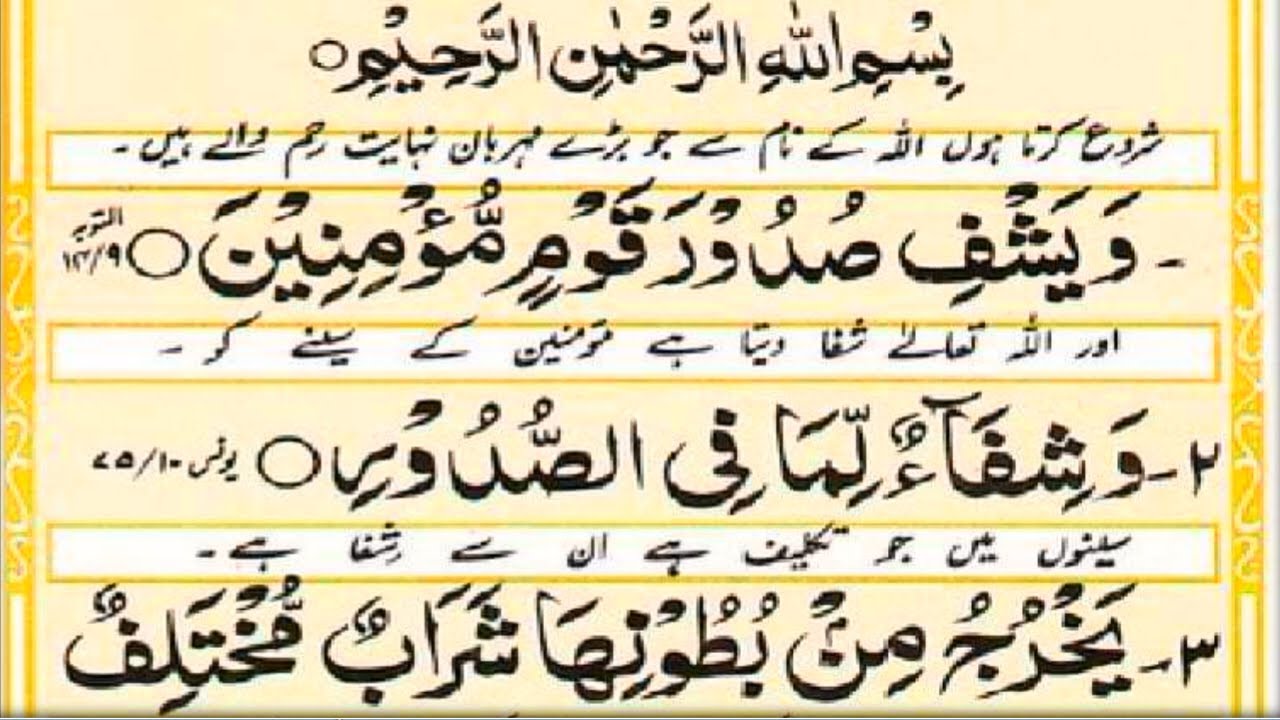 بِسْمِ اللّٰهِ الرَّحْمٰنِ الرَّحِيْمِ ○
شروع کرتا ہوں اللہ کے نام سے جو بڑے مہربان نہایت رحم والے ہیں ۔
۔ وَيَشْفِ صُدُوْرَ قَوْمٍ مُّؤْمِنِيْنَ ○ التوبہ ۱۴/۹
اور اللہ تعالےٰ شفا دیتا ہے مؤمنین کے سینے کو ۔
۲۔ وَشِفَآءٌ لِّمَا فِى الصُّدُوْرِ ○ یونس ۷۵/۱۰
سینوں میں جو تکلیف ہے ان سے شِفا ہے ۔
۳۔ يَخْرُجُ مِنْۢ بُطُوْنِهَا شَرَابٌ مُّخْتَلِفٌ